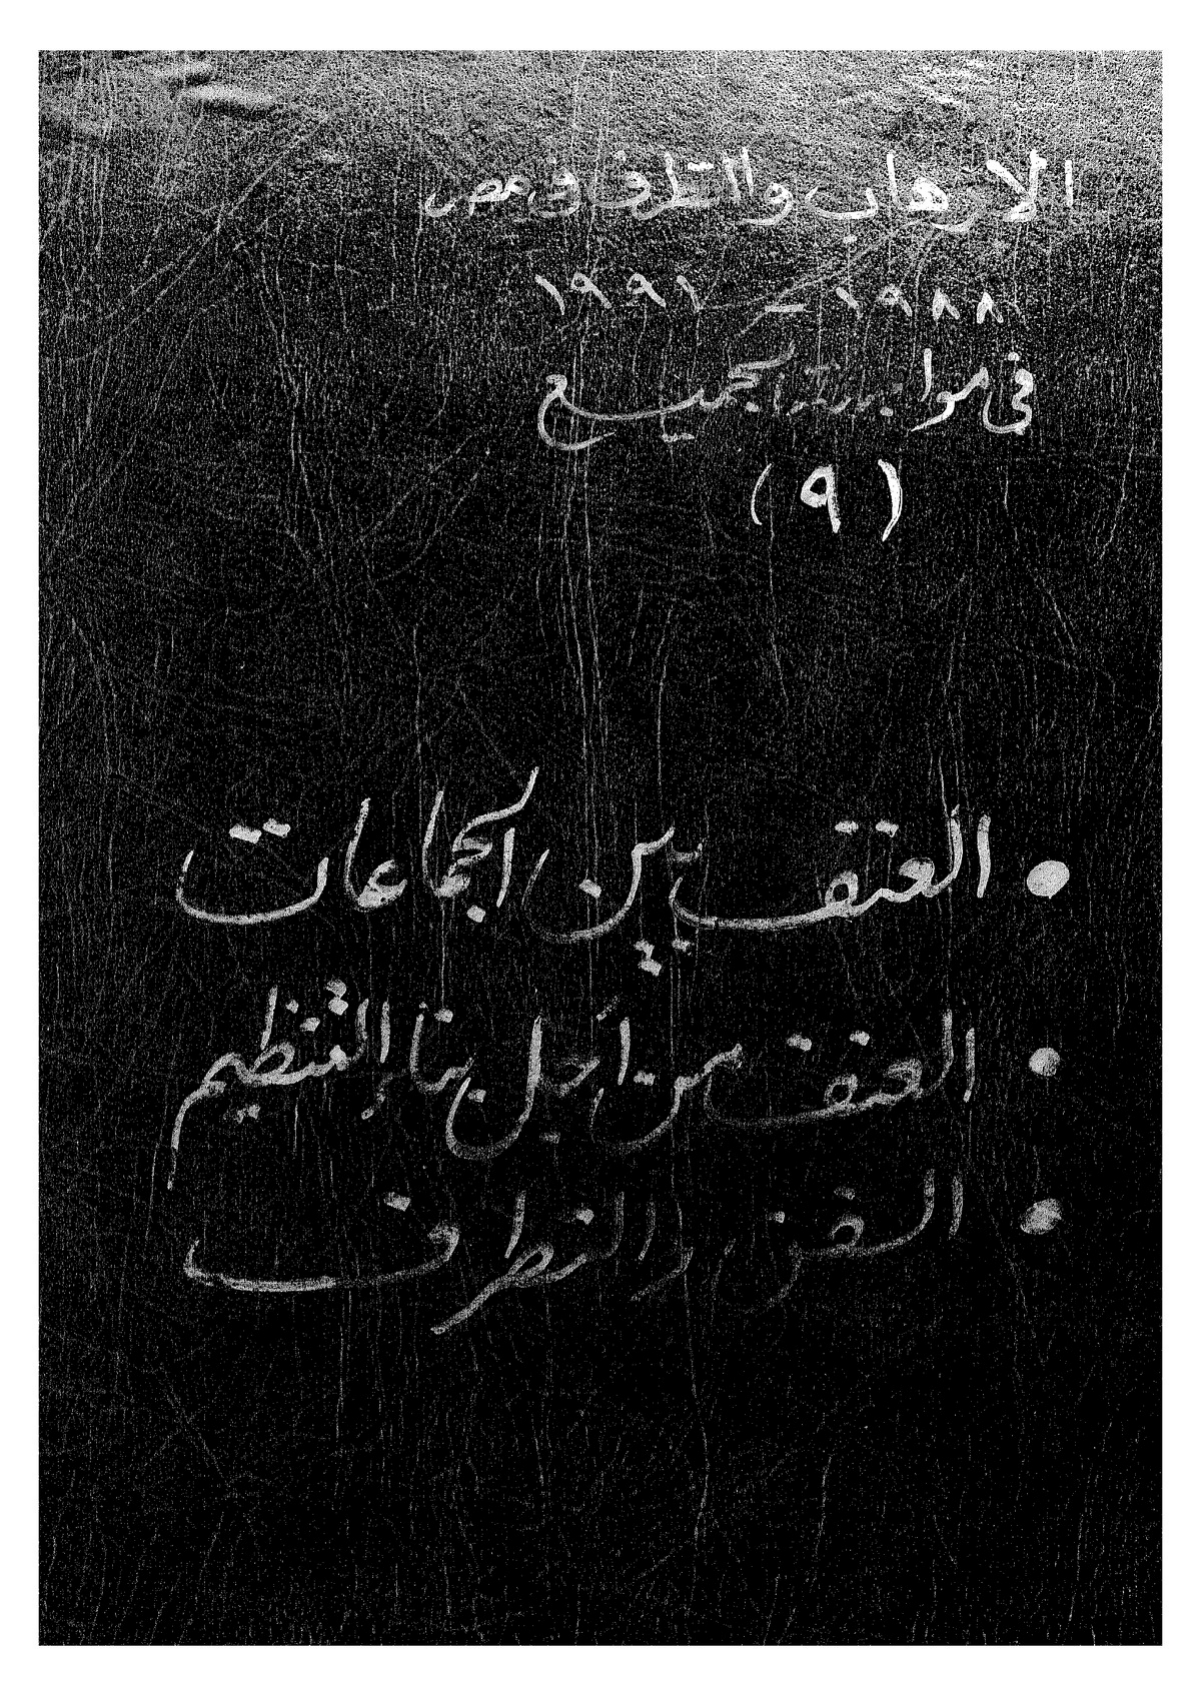 الارهاب والتطرف فى مصر
١٩٨٨ - ١٩٩١
فى مواجهة الجميع
(٩)
• العنف بين الجماعات
• العنف من أجل بناء التنظيم
• الفن والتطرف